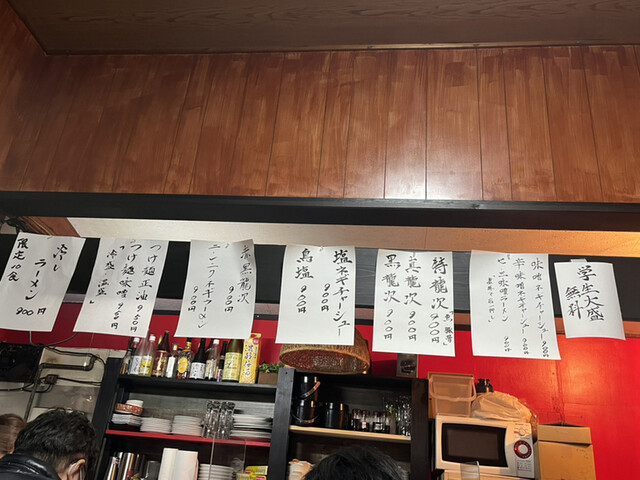 学生大盛
無料
味噌ネギチャーシュー 900円
辛味噌ネギチャーシュー 900円
ピリ辛味噌ラーメン
900円
特龍次 900円
真龍次 900円
黒龍次 900円
塩ネギチャーシュー
900円
鳥塩 900円
黒龍次
900円
ニンニクネギラーメン
900円
つけ麺正油 950円
つけ麺味噌 950円
「冷盛・温盛」
冷し
ラーメン
限定10食
900円